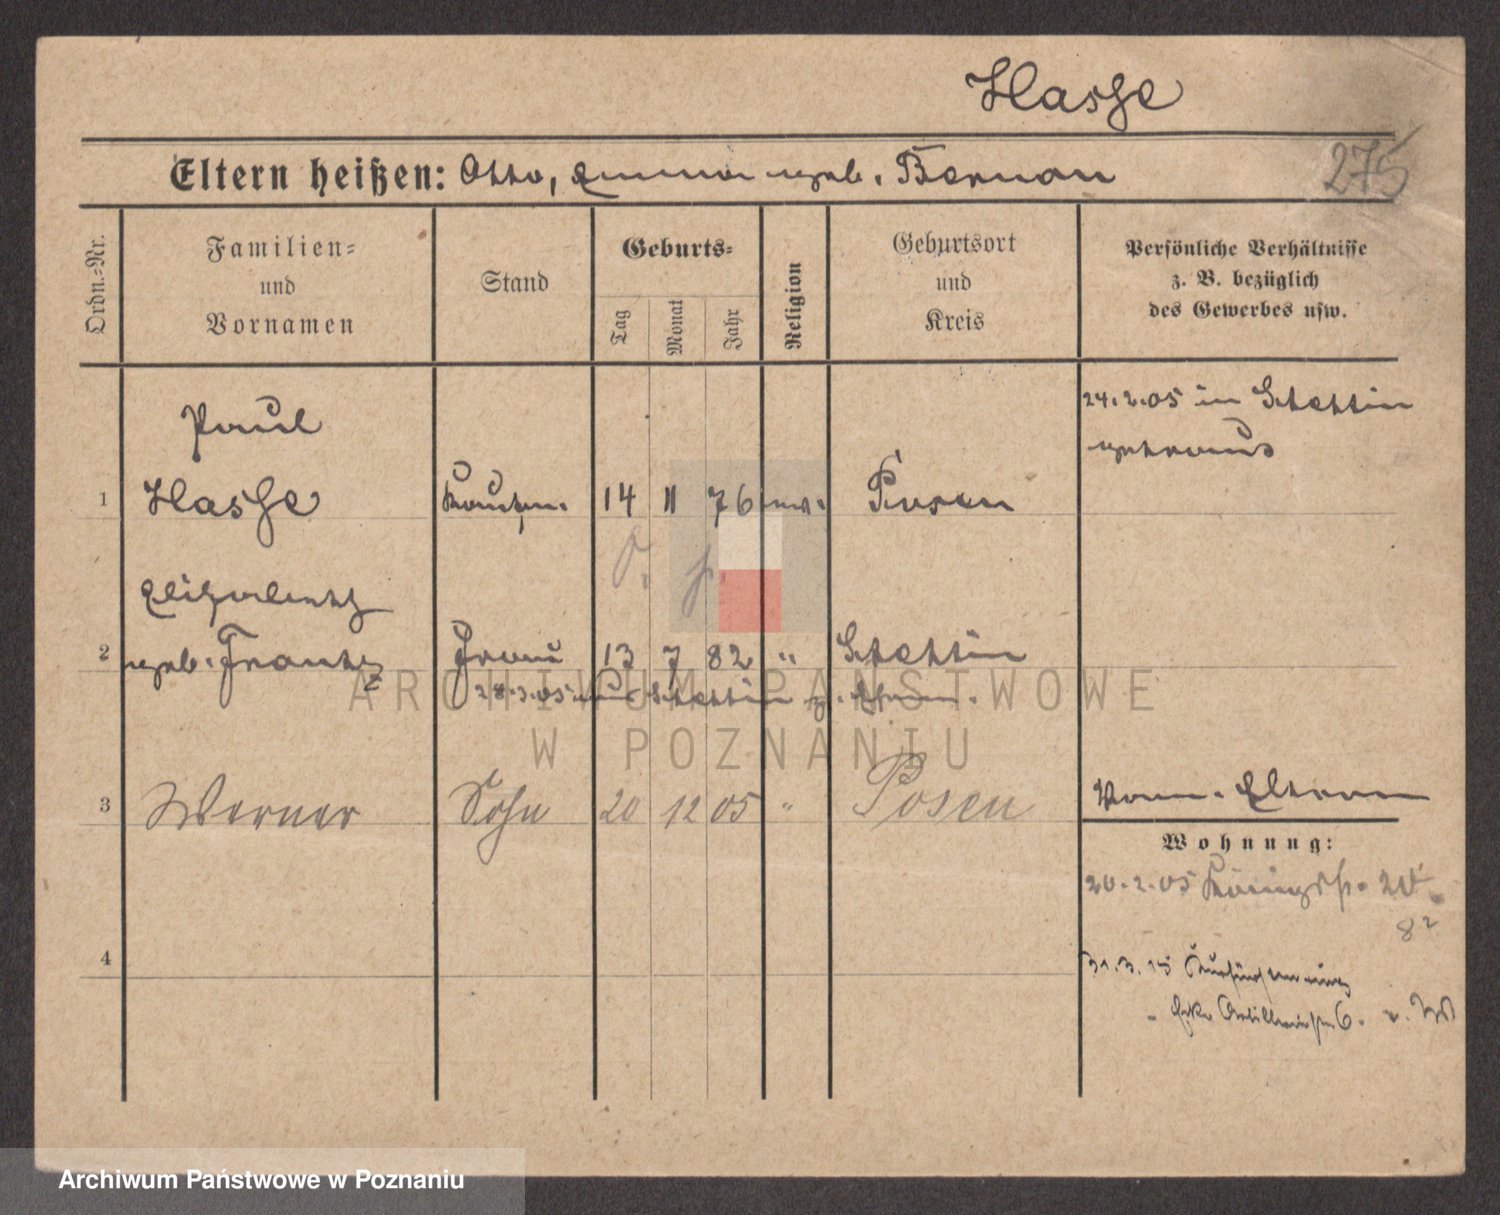 Hasse
275
Eltern heißen: Otto, Emma geb. Bernau
Ordn.=Nr.
Familien=
und
Vornamen
Stand
Geburts=
Tag
Monat
Jahr
Religion
Geburtsort
und
Kreis
Persönliche Verhältnisse
z. B. bezüglich
des Gewerbes usw.
24.2.05 in Stettin
getraut
Paul
1 Hasse Kaufm. 14 11 76 ev. Posen
Elisabeth
2 geb. Frantz Frau 13 7 82 " Stettin
28.3.05 aus Stettin z. Ehem.
3 Werner Sohn 20 12 05 " Posen
Vom. Eltern
Wohnung:
20.2.05 Königstr. 20
8
4
31.3. Kurfürstenring
Ecke Artilleriestr 6.
ARCHIWUM PAŃSTWOWE
W POZNANIU
Archiwum Państwowe w Poznaniu